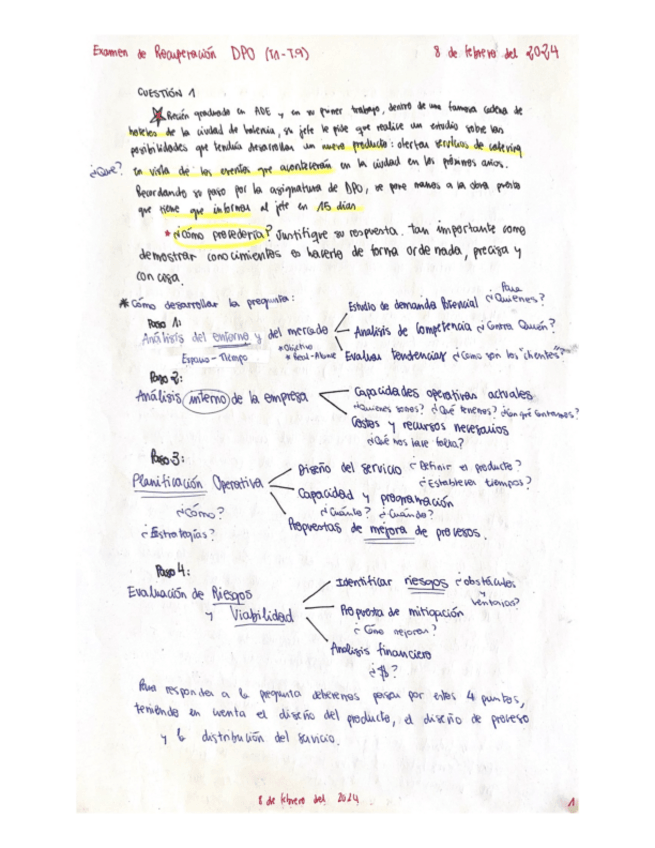 Examen de Recuperación DPO (T.1-T.9) 8 de febrero del 2024
CUESTIÓN 1
Recién graduado en ADE y en su primer trabajo, dentro de una famosa cadena de
hoteles de la ciudad de Valencia, su jefe le pide que realice un estudio sobre las
posibilidades que tendría desarrollar un nuevo producto: ofertar servicios de catering
¿Que? en vista de los eventos que acontecerán en la ciudad en los próximos años.
Recordando su paso por la asignatura de DPO, se pone manos a la obra puesto
que tiene que informar al jefe en 15 días
* ¿Cómo procedería? Justifique su respuesta. tan importante como
demostrar conocimientos es hacerlo de forma ordenada, precisa y
concisa.
* Cómo desarrollar la pregunta:
Paso 1:
Análisis del entorno y del mercado
Espacio - Tiempo
* Objetivo
Estudio de demanda Potencial ¿Para Quienes?
Analisis de Competencia ¿Contra Quién?
Evaluar tendencias ¿Cómo son los "clientes"?
Paso 2:
Análisis interno de la empresa
Capacidades operativas actuales
¿Quienes somos? ¿Qué tenemos? ¿Con qué contamos?
Costos y recursos necesarios
¿Qué nos hace falta?
Paso 3:
Planificación Operativa
¿Cómo?
¿Estrategias?
Diseño del servicio ¿Definir el producto?
¿Establecer tiempos?
Capacidad y programación
¿Cuánto? ¿Cuándo?
Propuestas de mejora de procesos.
Paso 4:
Evaluación de Riesgos
y Viabilidad
Identificar riesgos ¿obstáculos
y ventajas?
Propuesta de mitigación
¿Cómo mejorar?
Analisis financiero
¿$?
Para responder a la pregunta deberemos pasar por estos 4 puntos,
teniendo en cuenta el diseño del producto, el diseño de proceso
y la distribución del servicio.
8 de febrero del 2024 1